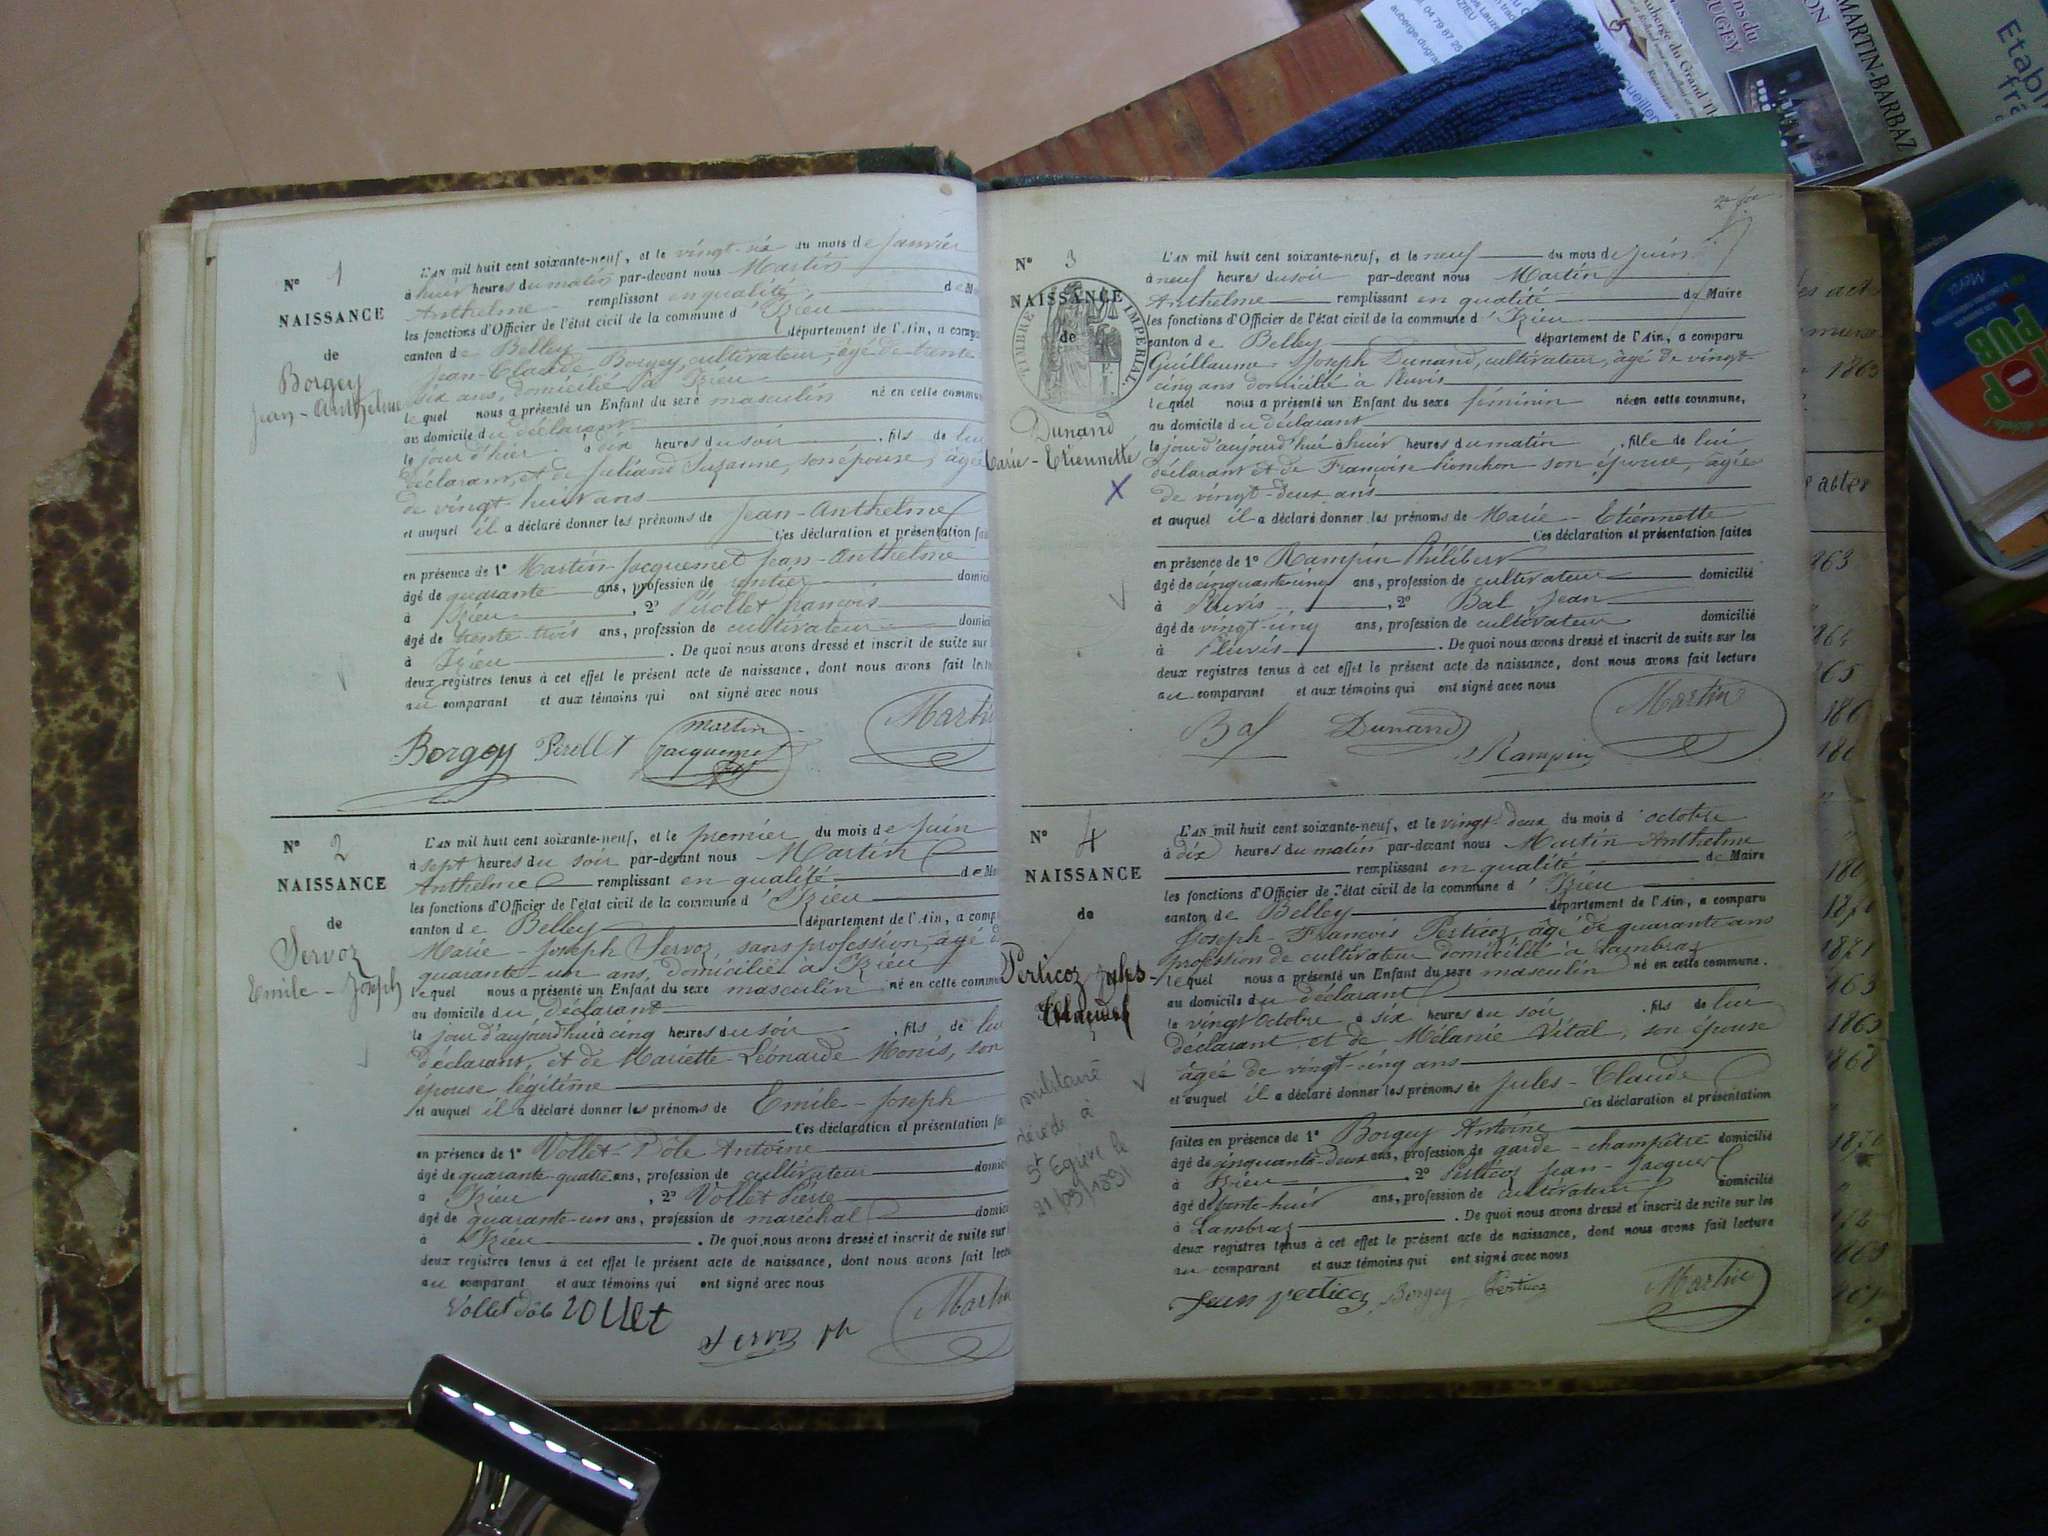 N° 1
NAISSANCE
de
Borgey
Jean-Anthelme
L'AN mil huit cent soixante-neuf, et le vingt-six du mois de Janvier
à huit heures du matin par-devant nous Martin
Anthelme remplissant en qualité de
les fonctions d'Officier de l'état civil de la commune d'Izieu
canton de Belley département de l'Ain, a
Jean-Claude Borgey, cultivateur, âgé de trente
six ans, domicilié à Izieu
lequel nous a présenté un Enfant du sexe masculin né en cette
au domicile du déclarant
le jour d'hier à dix heures du soir, fils de lui
déclarant, et de Juliand Suzanne, son épouse, âgée
de vingt-huit ans
et auquel il a déclaré donner les prénoms de Jean-Anthelme
Ces déclaration et présentation
en présence de 1° Martin-Jacquemet Jean-Anthelme
âgé de quarante ans, profession de rentier
à Izieu, 2° Pérollet françois
âgé de trente-trois ans, profession de cultivateur
à Izieu. De quoi nous avons dressé et inscrit de suite sur
deux registres tenus à cet effet le présent acte de naissance, dont nous avons fait
au comparant et aux témoins qui ont signé avec nous
Borgey
Martin
Jacquemet
N° 2
NAISSANCE
de
Servoz
Emile-Joseph
L'AN mil huit cent soixante-neuf, et le premier du mois de Juin
à sept heures du soir par-devant nous Martin
Anthelme remplissant en qualité de
les fonctions d'Officier de l'état civil de la commune d'Izieu
canton de Belley département de l'Ain, a
Marie-Joseph Servoz, sans profession, âgé de
quarante-un ans, domicilié à Izieu
lequel nous a présenté un Enfant du sexe masculin né en cette
au domicile du déclarant
le jour d'aujourd'hui à cinq heures du soir, fils de lui
déclarant, et de Mariette-Léonarde Monis, son
épouse légitime
et auquel il a déclaré donner les prénoms de Emile-Joseph
Ces déclaration et présentation
en présence de 1° Vollet-Dôle Antoine
âgé de quarante-quatre ans, profession de cultivateur
à Izieu, 2° Vollet Pierre
âgé de quarante-un ans, profession de maréchal
à Izieu. De quoi nous avons dressé et inscrit de suite sur
deux registres tenus à cet effet le présent acte de naissance, dont nous avons fait
au comparant et aux témoins qui ont signé avec nous
Martin
N° 3
NAISSANCE
de
TIMBRE IMPÉRIAL
Dunand
Marie-Etiennette
L'AN mil huit cent soixante-neuf, et le neuf du mois de Juin
à neuf heures du soir par-devant nous Martin
Anthelme remplissant en qualité de Maire
les fonctions d'Officier de l'état civil de la commune d'Izieu
canton de Belley département de l'Ain, a comparu
Guillaume-Joseph Dunand, cultivateur, âgé de vingt-
cinq ans domicilié à
lequel nous a présenté un Enfant du sexe féminin né en cette commune,
au domicile du déclarant
le jour d'aujourd'hui à huit heures du matin, fille de lui
déclarant et de Françoise son épouse, âgée
de vingt-deux ans
et auquel il a déclaré donner les prénoms de Marie-Etiennette
Ces déclaration et présentation faites
en présence de 1° Rampin Philibert
âgé de cinquante-cinq ans, profession de cultivateur domicilié
à, 2° Bal Jean
âgé de vingt-cinq ans, profession de cultivateur domicilié
à. De quoi nous avons dressé et inscrit de suite sur les
deux registres tenus à cet effet le présent acte de naissance, dont nous avons fait lecture
au comparant et aux témoins qui ont signé avec nous
Bal Dunand Rampin Martin
N° 4
NAISSANCE
de
Perticoz Jules-
Claude
militaire
décédé à
le
L'AN mil huit cent soixante-neuf, et le vingt-deux du mois d'octobre
à dix heures du matin par-devant nous Martin Anthelme
remplissant en qualité de Maire
les fonctions d'Officier de l'état civil de la commune d'Izieu
canton de Belley département de l'Ain, a comparu
Joseph-François Perticoz, âgé de quarante ans
profession de cultivateur domicilié à Lambraz
lequel nous a présenté un Enfant du sexe masculin né en cette commune.
au domicile du déclarant
le vingt octobre à six heures du soir, fils de lui
déclarant et de Mélanie Vital, son épouse
âgée de vingt-cinq ans
et auquel il a déclaré donner les prénoms de Jules-Claude
Ces déclaration et présentation
faites en présence de 1° Borgey Antoine
âgé de cinquante-deux ans, profession de garde-champêtre domicilié
à Izieu, 2° Perticoz Jean-Jacques
âgé de trente-huit ans, profession de cultivateur domicilié
à Lambraz. De quoi nous avons dressé et inscrit de suite sur les
deux registres tenus à cet effet le présent acte de naissance, dont nous avons fait lecture
au comparant et aux témoins qui ont signé avec nous
Jean perticoz Borgey Perticoz Martin
MARTIN-BARBAZ
STOP
PUB